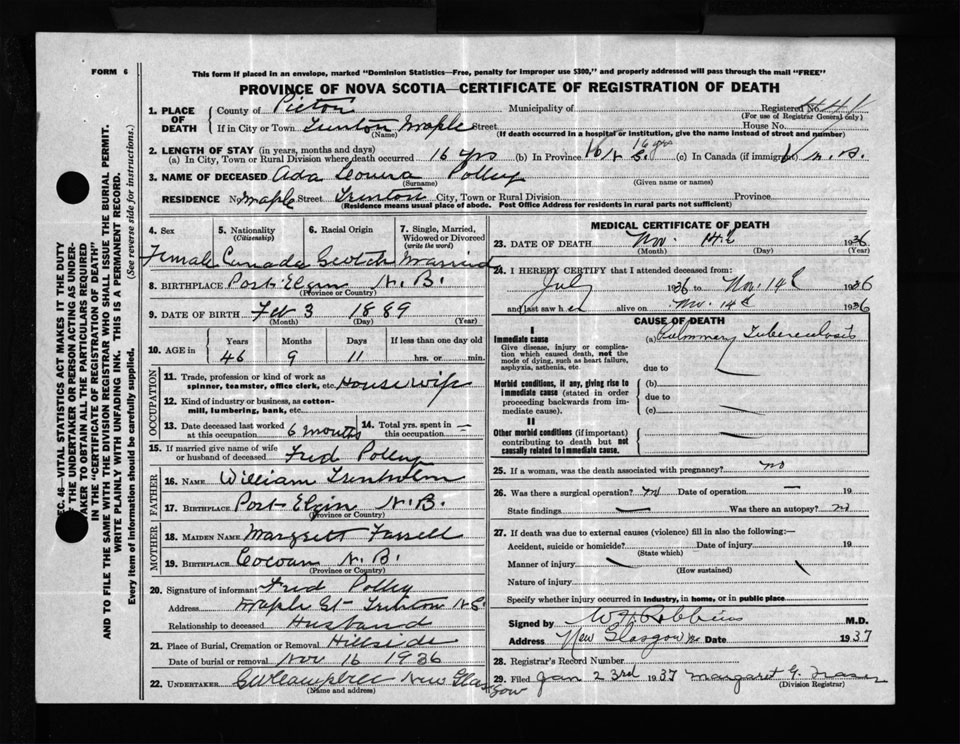 FORM 6
This form if placed in an envelope, marked "Dominion Statistics—Free, penalty for improper use $300," and properly addressed will pass through the mail "FREE"
PROVINCE OF NOVA SCOTIA—CERTIFICATE OF REGISTRATION OF DEATH
SEC. 46—VITAL STATISTICS ACT MAKES IT THE DUTY
OF THE UNDERTAKER OR PERSON ACTING AS UNDER-
TAKER TO OBTAIN ALL THE PARTICULARS REQUIRED
IN THE "CERTIFICATE OF REGISTRATION OF DEATH"
AND TO FILE THE SAME WITH THE DIVISION REGISTRAR WHO SHALL ISSUE THE BURIAL PERMIT.
WRITE PLAINLY WITH UNFADING INK. THIS IS A PERMANENT RECORD.
Every item of information should be carefully supplied. (See reverse side for instructions.)
1. PLACE OF DEATH
County of Pictou Municipality of Registered No. 441
(For use of Registrar General only)
If in City or Town Trenton Maple Street House No.
(Name) (If death occurred in a hospital or institution, give the name instead of street and number)
2. LENGTH OF STAY (in years, months and days)
(a) In City, Town or Rural Division where death occurred 16 yrs (b) In Province 16 N.S. 16 yrs (c) In Canada (if immigrant) N.B.
3. NAME OF DECEASED Ada Polley
(Surname) (Given name or names)
RESIDENCE No Maple Street Trenton City, Town or Rural Division Province
(Residence means usual place of abode. Post Office Address for residents in rural parts not sufficient)
4. Sex 5. Nationality (Citizenship) 6. Racial Origin 7. Single, Married, Widowed or Divorced (write the word)
Female Canada Scotch Married
8. BIRTHPLACE Port Elgin N.B.
(Province or Country)
9. DATE OF BIRTH Feb 3 1889
(Month) (Day) (Year)
10. AGE in Years Months Days If less than one day old
46 9 11 hrs. or min.
OCCUPATION
11. Trade, profession or kind of work as spinner, teamster, office clerk, etc. House wife
12. Kind of industry or business, as cotton-mill, lumbering, bank, etc.
13. Date deceased last worked at this occupation 6 months 14. Total yrs. spent in this occupation —
15. If married give name of wife or husband of deceased Fred Polley
FATHER
16. NAME William Trenholm
17. BIRTHPLACE Port Elgin N.B.
(Province or Country)
MOTHER
18. MAIDEN NAME Margrett Farrell
19. BIRTHPLACE N.B.
(Province or Country)
20. Signature of informant Fred Polley
Address Maple St Trenton N.S.
Relationship to deceased Husband
21. Place of Burial, Cremation or Removal Hillside
Date of burial or removal Nov 16 1936
22. UNDERTAKER New Glasgow
(Name and address)
MEDICAL CERTIFICATE OF DEATH
23. DATE OF DEATH Nov. 14th 1936
(Month) (Day) (Year)
24. I HEREBY CERTIFY that I attended deceased from:
July 1936 to Nov. 14th 1936
and last saw her alive on Nov. 14th 1936
CAUSE OF DEATH
I
Immediate cause (a) Pulmonary Tuberculosis
Give disease, injury or complication which caused death, not the mode of dying, such as heart failure, asphyxia, asthenia, etc.
due to
Morbid conditions, if any, giving rise to immediate cause (stated in order proceeding backwards from immediate cause).
(b)
due to
(c)
II
Other morbid conditions (if important) contributing to death but not causally related to immediate cause.
25. If a woman, was the death associated with pregnancy? no
26. Was there a surgical operation? no Date of operation — 19
State findings — Was there an autopsy? no
27. If death was due to external causes (violence) fill in also the following:—
Accident, suicide or homicide? Date of injury 19
(State which)
Manner of injury
(How sustained)
Nature of injury
Specify whether injury occurred in industry, in home, or in public place
Signed by W H Robbins M.D.
Address New Glasgow NS Date 1937
28. Registrar's Record Number
29. Filed Jan 23rd 1937 Margaret G.
(Division Registrar)